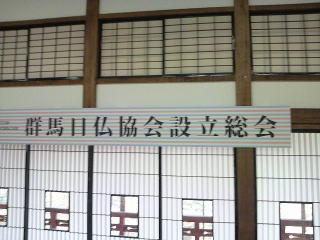 群馬日仏協会設立総会